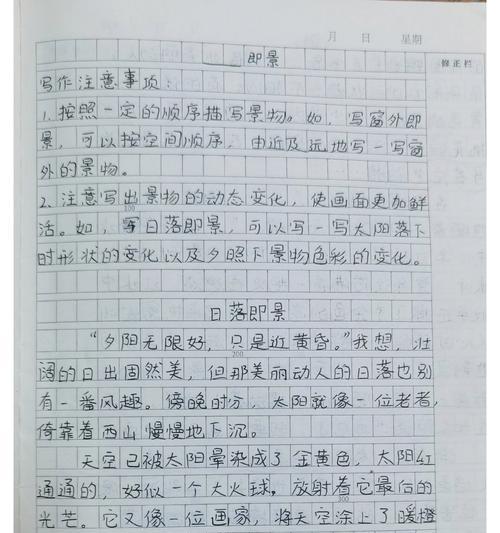 月 日 星期
修正栏
____即景
写作注意事项:
1.按照一定的顺序描写景物。如,写窗外即
景,可以按空间顺序,由近及远地写一写窗
外的景物。
2.注意写出景物的动态变化,使画面更加鲜
活。如,写日落即景,可以写一写太阳落下
时形状的变化以及夕照下景物色彩的变化。
日落即景
“夕阳无限好,只是近黄昏。”我想,壮
阔的日出固然美,但那美丽动人的日落也别
有一番风趣。傍晚时分,太阳就像一位老者,
倚靠着西山慢慢地下沉。
天空已被太阳晕染成了金黄色,太阳红
通通的,好似一个大火球,放射着它最后的
光芒。它又像一位画家,将天空涂上了暖橙